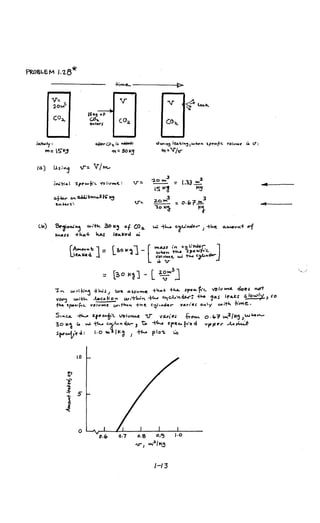 PROBLEM 1.28*
time
V=
20m³
CO₂
15 kg of
CO₂
enters
V
CO₂
V
leak
CO₂
initially:
m= 15 kg
after CO₂ is added:
m= 30 kg
during leaking, when specific volume is v:
m= V/v
(a) Using v= V/m
initial specific volume: v= 20 m³ / 15 kg = 1.33 m³/kg
after an additional 15 kg
enters: v= 20 m³ / 30 kg = 0.67 m³/kg
(b) Beginning with 30 kg of CO₂ in the cylinder, the amount of
mass that has leaked is
[Amount leaked] = [30 kg] - [mass in cylinder when the specific volume in the cylinder is v]
= [30 kg] - [20 m³ / v]
In writing this, we assume that the specific volume does not
vary with location within the cylinder: the gas leaks slowly, so
the specific volume within the cylinder varies only with time.
Since the specific volume v varies from 0.67 m³/kg, when
30 kg is in the cylinder, to the specified upper
specified: 1.0 m³/kg, the plot is
Amount leaked, kg
10
5
0
0.6 0.7 0.8 0.9 1.0
v, m³/kg
1-13